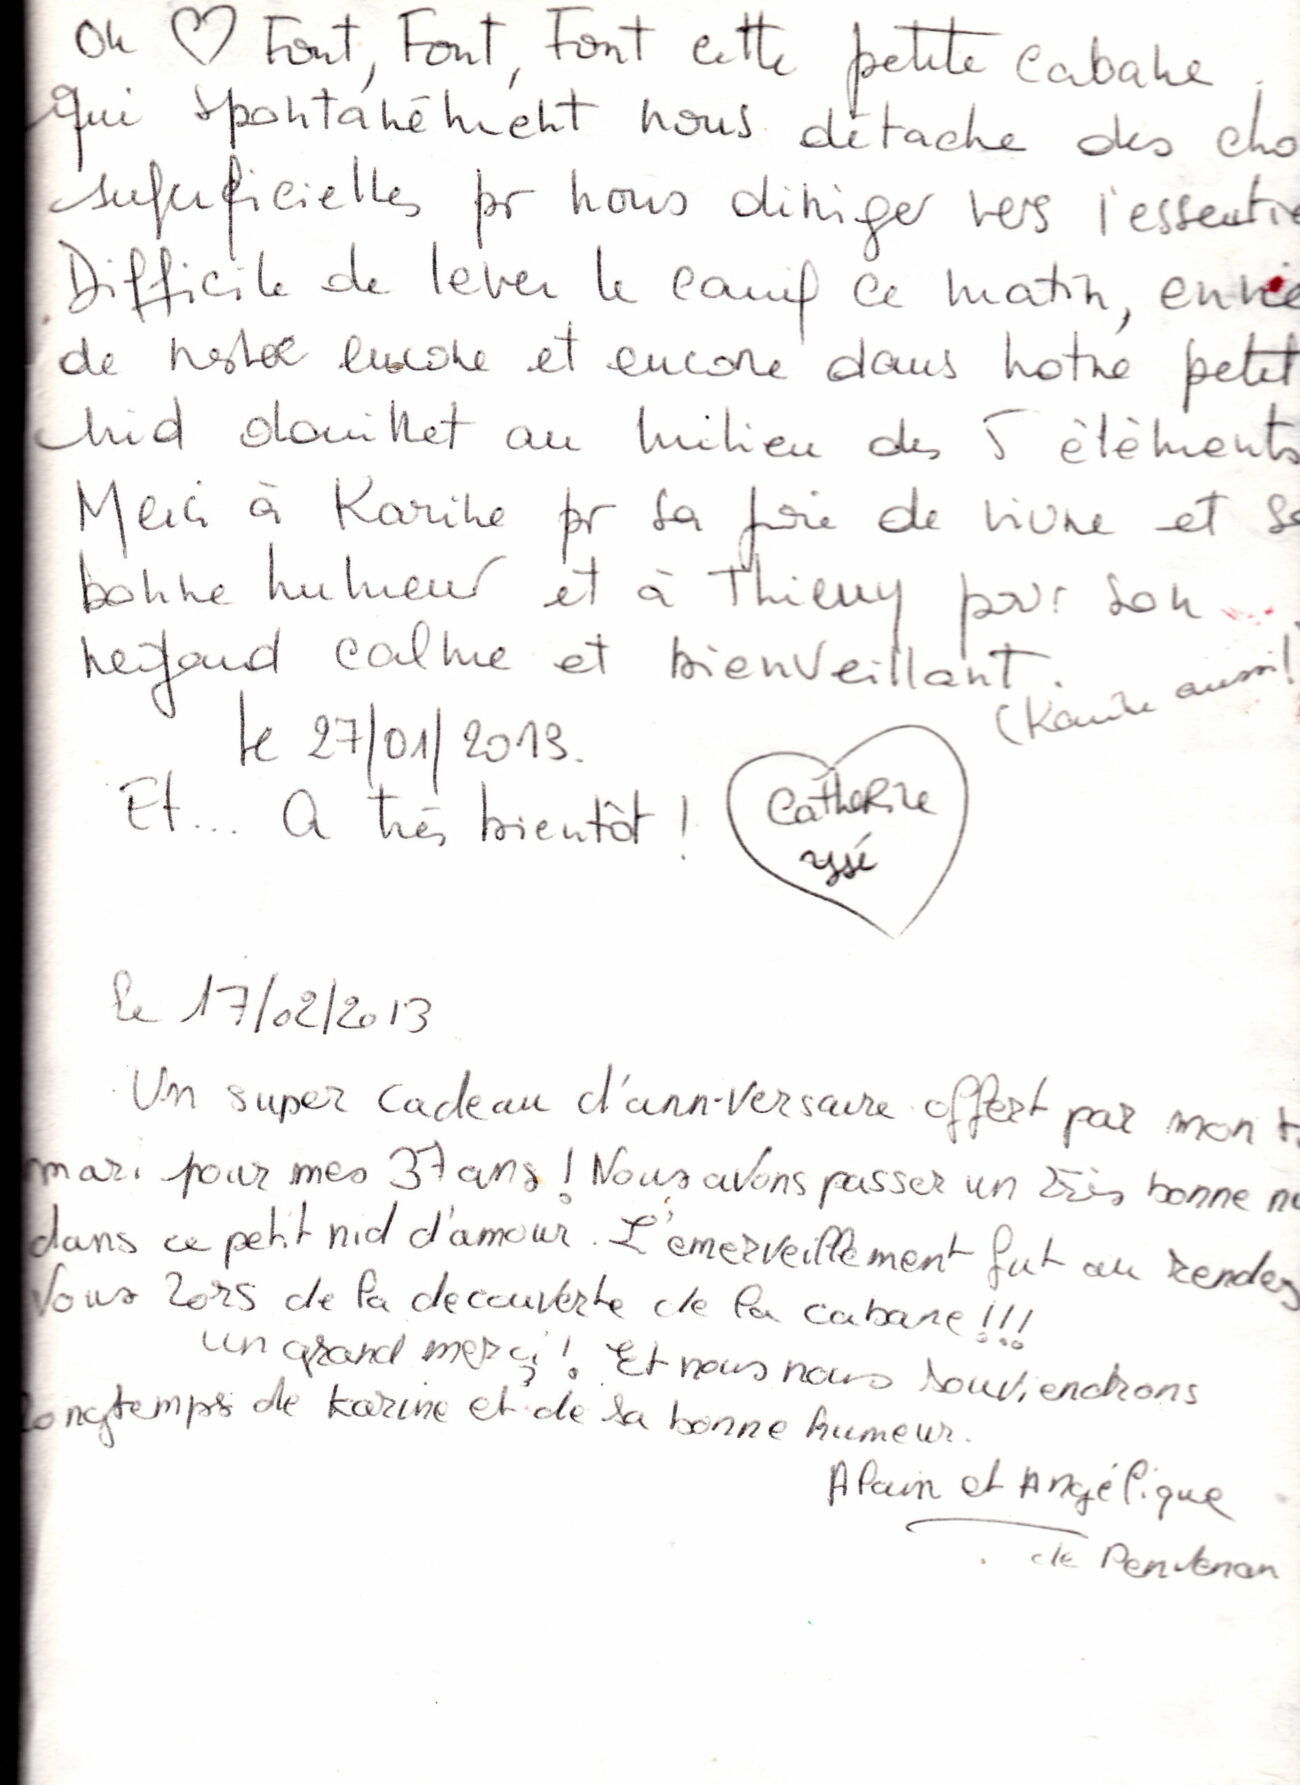 On ♡ Font, Font, Font cette petite cabane.
qui spontanément nous détache des cho
superficielles pr nous diriger vers l'essentie
Difficile de lever le camp ce matin, envie
de rester encore et encore dans notre petit
nid douillet au milieu des 5 éléments
Merci à Karine pr sa joie de vivre et sa
bonne humeur et à Thierry pour son
regard calme et bienveillant.
(Karine aussi!
le 27/01/2013.
Et... A très bientôt !
Catherine
yssé
le 17/02/2013
Un super cadeau d'anniversaire offert par mon
mari pour mes 37 ans ! Nous avons passer un très bonne nu
dans ce petit nid d'amour. L'émerveillement fut au rendez
Vous lors de la decouverte de la cabane !!!
un grand merçi ! Et nous nous souviendrons
longtemps de Karine et de sa bonne humeur.
Alain et Angélique
de Penvenan